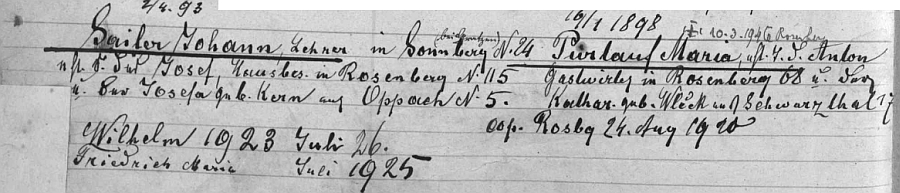 2/4. 93 19/1 1898 10.3.1946 Romberg
Sailer Johann, Lehrer in Sonnberg N. 24 Purlauf Maria, ehl. T. d. Anton
ehl. S. des Josef, Hausbes. in Rosenberg N. 115 Gastwirtes in Rosenberg 68 u. der
u. der Josefa geb. Kern aus Oppach N. 5. Kathar. geb. Wleck aus Schwarzthal 17
cop. Rosbg 24. Aug 1920
Wilhelm 1923 Juli 26.
Friedrich Maria Juli 1925